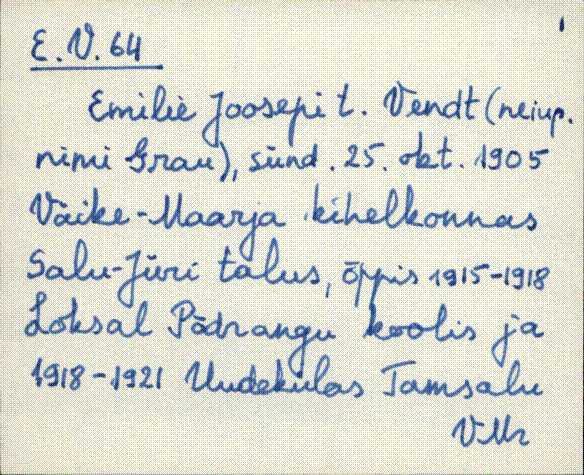 1
E.V. 64
Emilie Joosepi t. Vendt (neiup.
nimi Grau), sünd. 25. okt. 1905
Väike-Maarja kihelkonnas
Salu-Jüri talus, õppis 1915-1918
Loksal Põdrangu koolis ja
1918-1921 Uudekülas Tamsalu